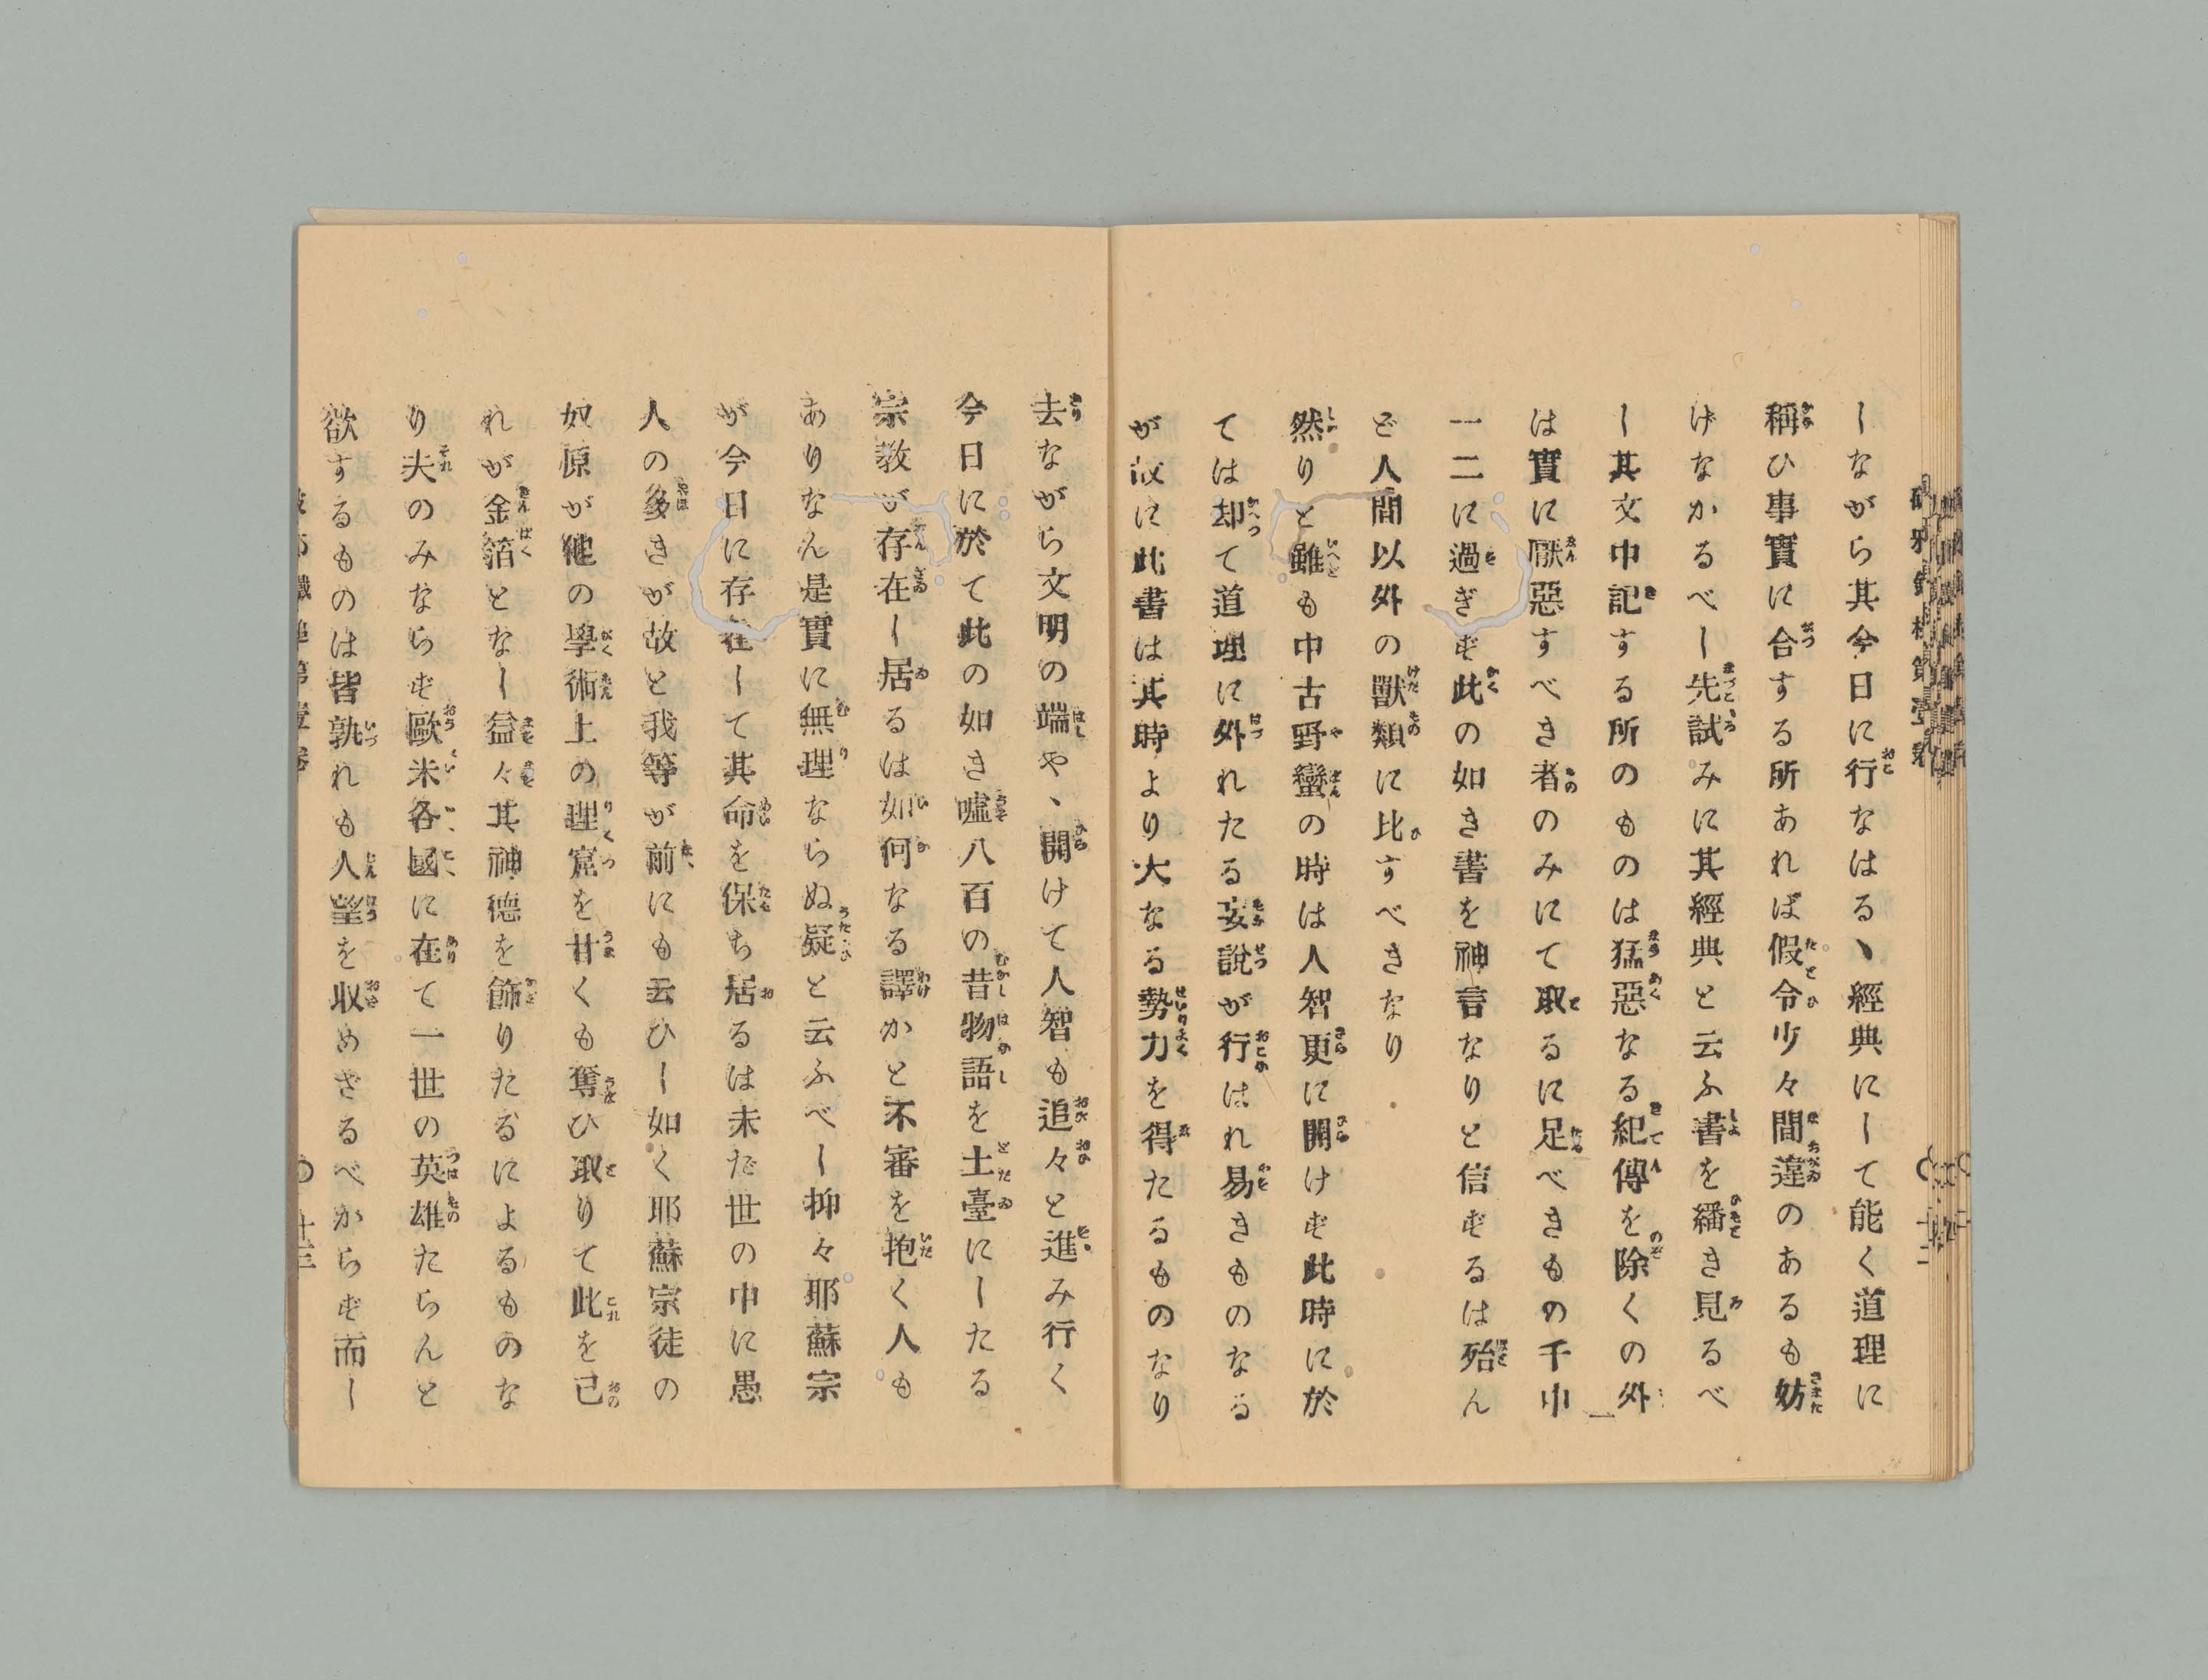 しながら其今日に行なはるヽ經典にして能く道理に
稱ひ事實に合する所あれば假令少々間違のあるも妨
げなかるべし先試みに其經典と云ふ書を繙き見るべ
し其文中記する所のものは猛惡なる紀傳を除くの外
は實に厭惡すべき者のみにて取るに足べきもの千中
一二に過ぎず此の如き書を神言なりと信ずるは殆ん
ど人間以外の獸類に比すべきなり
然りと雖も中古野蠻の時は人智更に開けず此時に於
ては却て道理に外れたる妄說が行はれ易きものなる
が故に此書は其時より大なる勢力を得たるものなり
去ながら文明の端や、開けて人智も追々と進み行く
今日に於て此の如き嘘八百の昔物語を土臺にしたる
宗教が存在し居るは如何なる譯かと不審を抱く人も
ありなん是實に無理ならぬ疑と云ふべし抑々耶蘇宗
が今日に存在して其命を保ち居るは未だ世の中に愚
人の多きが故と我等が前にも云ひし如く耶蘇宗徒の
奴原が他の學術上の理窟を甘くも奪ひ取りて此を己
れが金箔となし益々其神德を飾りたるによるものな
り夫のみならず歐米各國に在て一世の英雄たらんと
欲するものは皆孰れも人望を収めざるべからず而し